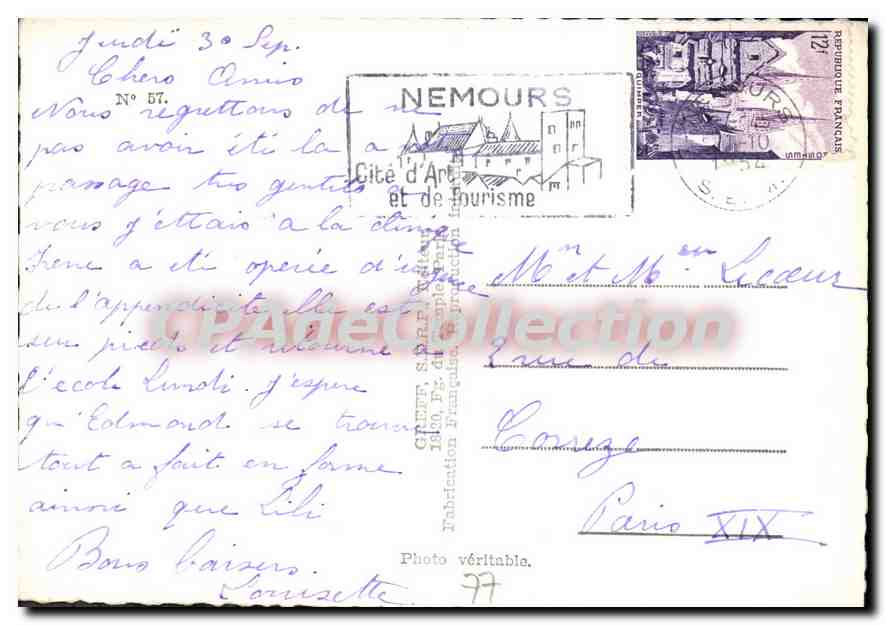 Jeudi 30 Sep.
Chers Amis
N° 57.
Nous regrettons de ne
pas avoir été là a
passage très gentils à
vous j'ettais à la clinique
Irene a été operée d'urgence
de l'appendicite elle est
sur pieds et retourne a
l'école Lundi. J'espere
qu'Edmond se trouve
tout a fait en forme
ainsi que Lili
Bons baisers.
Louisette
NEMOURS
Cité d'Art
et de Tourisme
REPUBLIQUE FRANÇAISE
12f
QUIMPER
POSTES
NEMOURS
-10
1954
S. ET M.
GREFF, S.E.R.P., Editeur
18-20, Fg. du Temple, Paris
Fabrication Française. Reproduction
Photo véritable.
77
Mr et Mme Lecœur
2 rue de
Correze
Paris XIX
CPAdeCollection